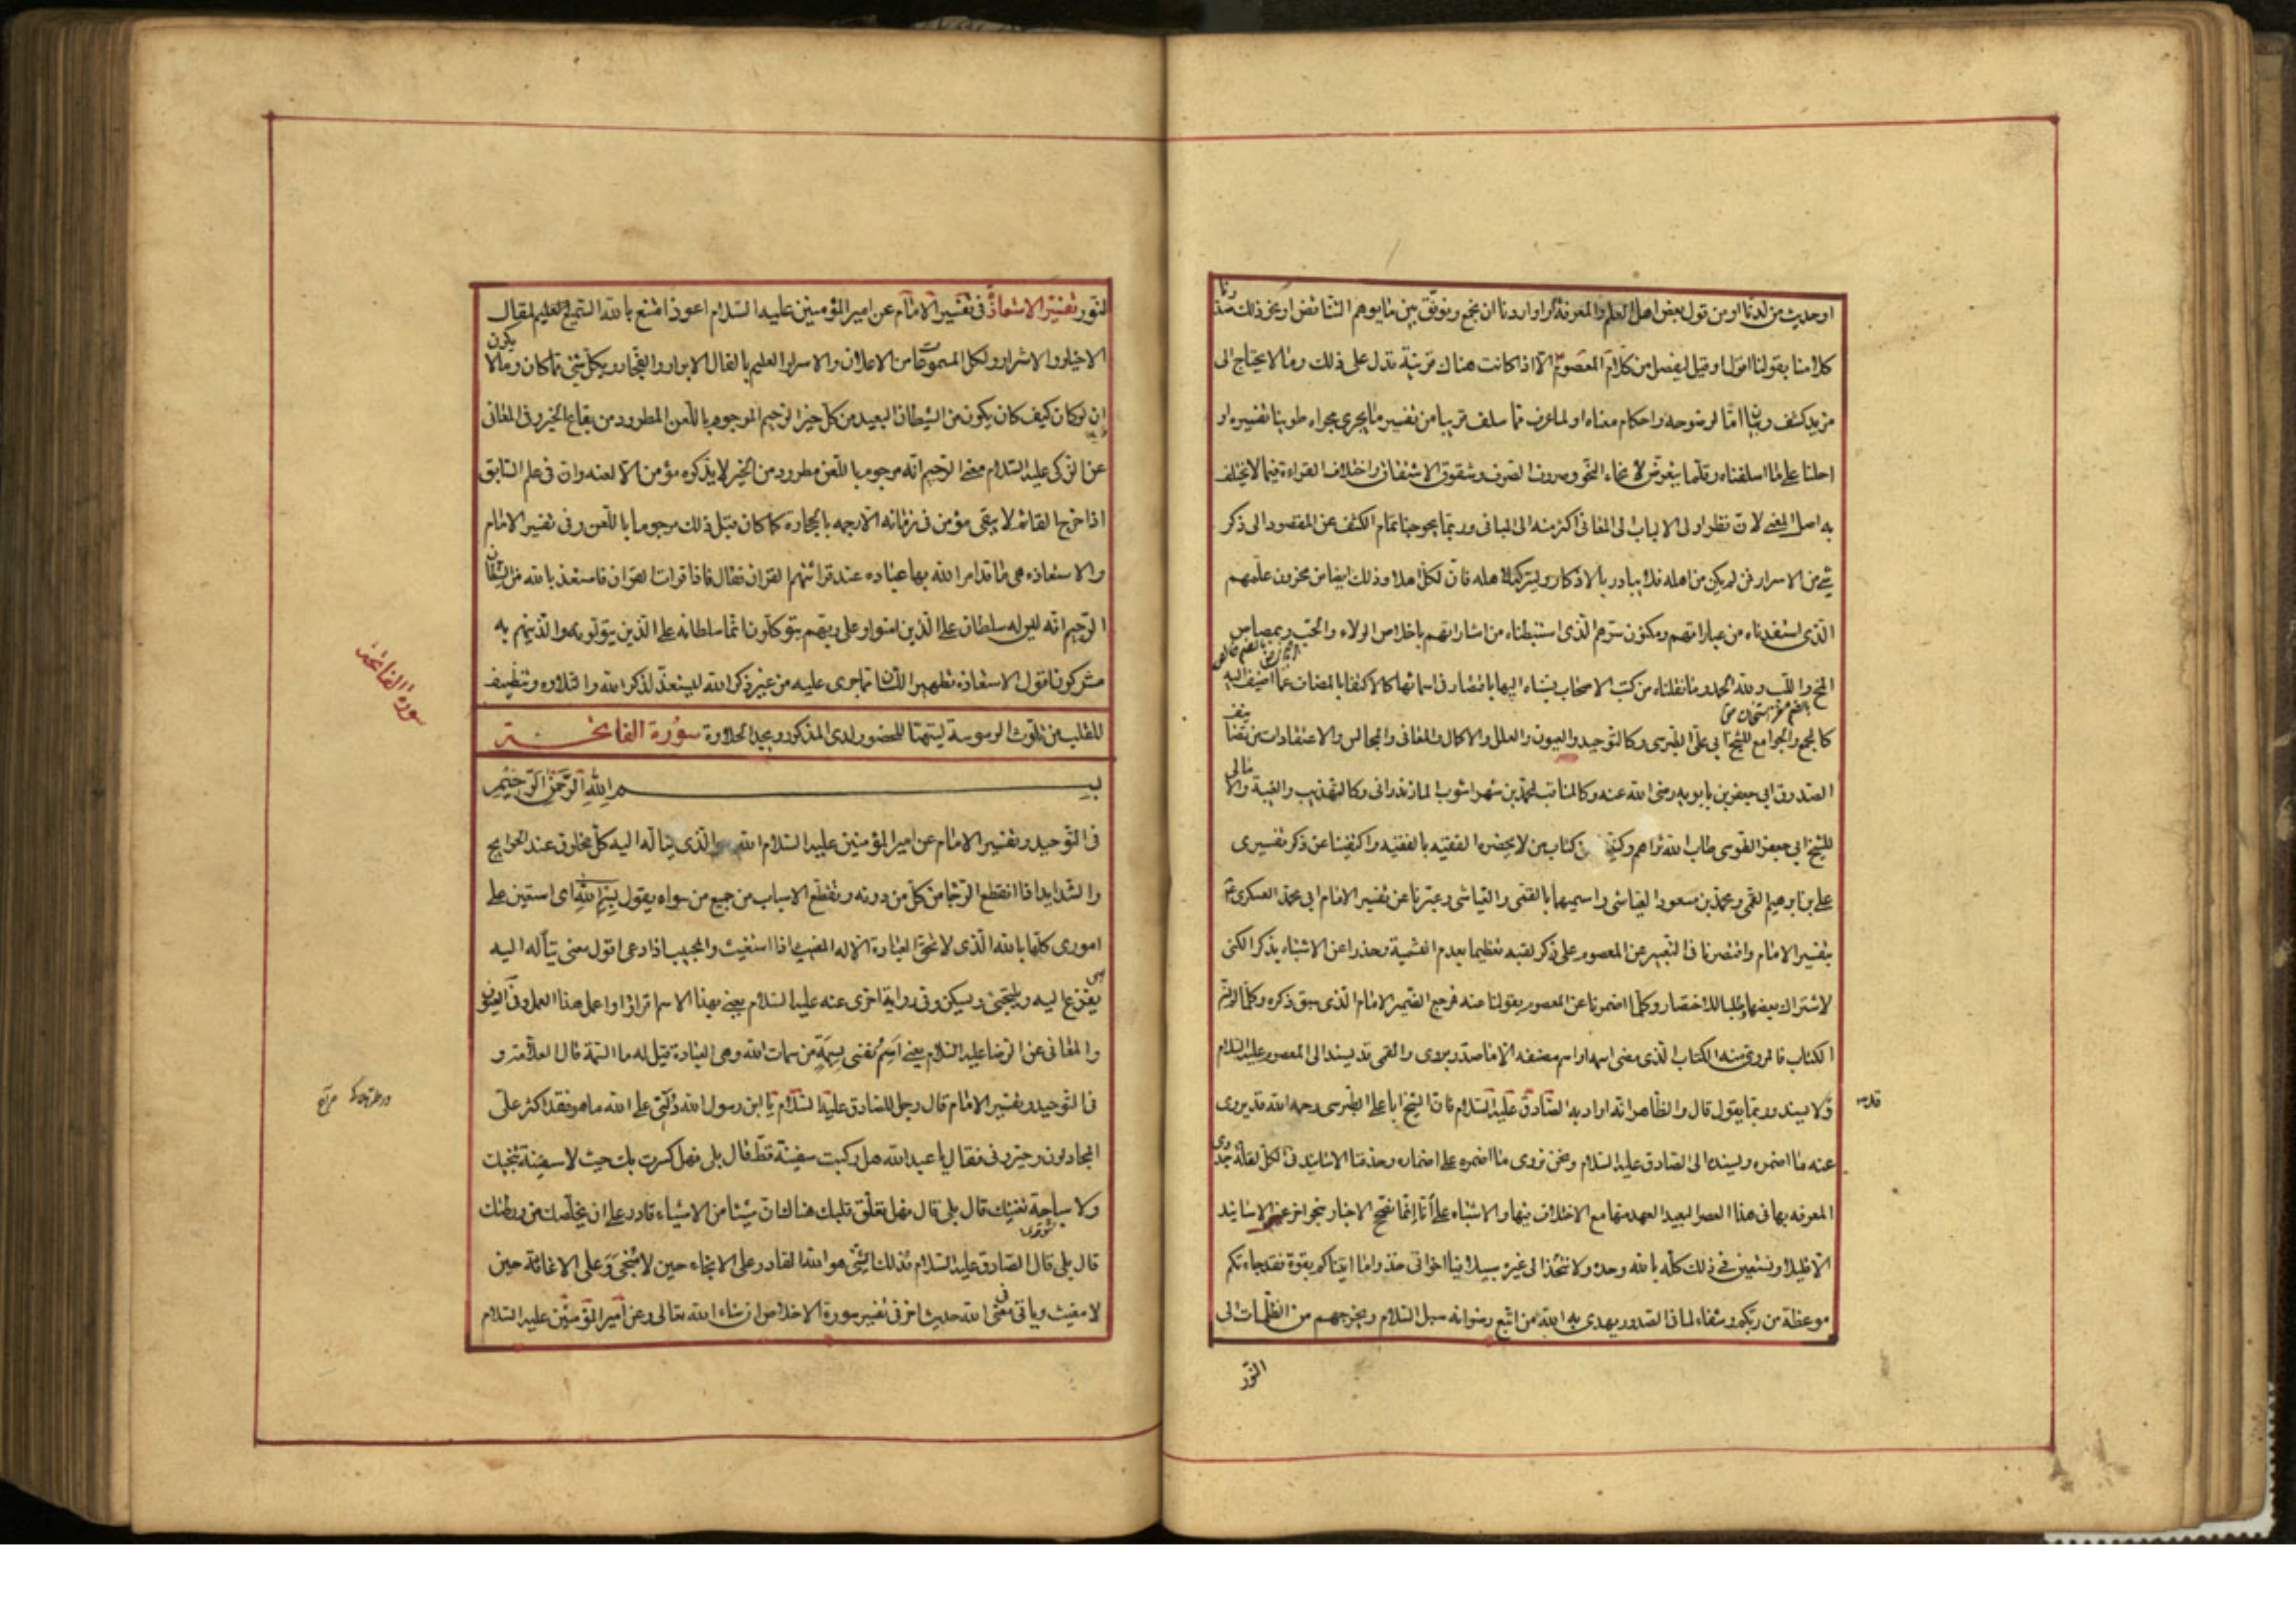 او حديث من لدنا او من قول بعض اهل العلم والمعرفة او اردنا ان نجمع ونوفق بين ما يوهم التناقض او نحو ذلك صدرنا
كلامنا بقولنا اقول او قيل ليفصل من كلام المعصوم الا اذا كانت هناك قرينة تدل على ذلك وما لا يحتاج الى
مزيد كشف وبيان اما لوضوحه واحكام معناه او لما عرف مما سلف قريبا من تفسير ما يجري مجراه طوينا تفسيره او
احلنا على ما اسلفناه وقلما نتعرض لانحاء النحو وصروف الصرف وشقوق الاشتقاق واختلاف القراءة فيما لا يختلف
به اصل المعنى لان نظر اولى الالباب الى المعاني اكثر منه الى المباني وربما يحوجنا تمام الكشف عن المقصود الى ذكر
شئ من الاسرار فمن لم يكن من اهله فلا يبادر بالانكار وليتركه لاهله فان لكل اهلا وذلك ايضا من مخزون علمهم
الذي استفدناه من عباراتهم ومكنون سرهم الذي استنبطناه من اشاراتهم باخلاص الولاء والحب وبمصاص
المخ واللب ولله الحمد وما نقلناه من كتب الاصحاب نسبناه اليها باقتصار في اسمائها كالاكتفاء بالمضاف عما اضيف اليه
كالمجمع والجوامع للشيخ ابي علي الطبرسي وكالتوحيد والعيون والعلل والاكمال والمعاني والمجالس والاعتقادات من تصنيفات
الصدوق ابي جعفر بن بابويه رضي الله عنه وكالمناقب لمحمد بن شهر اشوب المازندراني وكالتهذيب والغيبة والامالي
للشيخ ابي جعفر الطوسي طاب الله ثراهم وكنينا عن كتاب من لا يحضره الفقيه بالفقيه واكتفينا عن ذكر تفسيري
علي بن ابرهيم القمي ومحمد بن مسعود العياشي واسميهما بالقمي والعياشي وعبرنا عن تفسير الامام ابي محمد العسكري
بتفسير الامام واقتصرنا في التعبير عن المعصوم على ذكر لقبه تعظيما بعدم التسمية وحذرا عن الاشتباه بذكر الكنى
لاشتراك بعضها وطلبا للاختصار وكلما اضمرنا عن المعصوم بقولنا عنه فمرجع الضمير الامام الذي سبق ذكره وكلما لم نسم
الكتاب فالمروي منه الكتاب الذي مضى اسمه او اسم مصنفه الا ما صدر بروى والقمي قد يسند الى المعصوم عليه السلام
وقد لا يسند وربما يقول قال والظاهر انه اراد به الصادق عليه السلام فان الشيخ ابا علي الطبرسي رحمه الله قد يروى
عنه ما اضمره ويسنده الى الصادق عليه السلام ونحن نروى ما اضمره على اضماره وحذفنا الاسانيد في الكل لقلة جدوى
المعرفه بها في هذا العصر البعيد العهد عنها مع الاختلاف فيها والاشتباه على انا انما نصحح الاخبار بنحو اخر غير الاسانيد
الا قليلا ونستعين في ذلك كله بالله وحده ولا نتخذ الى غيره سبيلا فيا اخواني خذوا ما اتيناكم بقوة فقد جاءتكم
موعظة من ربكم وشفاء لما في الصدور يهدى به الله من اتبع رضوانه سبل السلام ويخرجهم من الظلمات الى
النور
النور تفسير الاستعاذة في تفسير الامام عن امير المؤمنين عليه السلام اعوذ امتنع بالله السميع العليم لمقال
الاخيار والاشرار ولكل المسموعات من الاعلان والاسرار العليم بافعال الابرار والفجار وبكل شئ مما كان وما لا يكون
ان لو كان كيف كان يكون من الشيطان البعيد من كل خير الرجيم المرجوم باللعن المطرود من بقاع الخير وفي المعاني
عن الزكي عليه السلام معنى الرجيم انه مرجوم باللعن مطرود من الخير لا يذكره مؤمن الا لعنه وان في علم السابق
اذا خرج القائم لا يبقى مؤمن في زمانه الا رجمه بالحجارة كما كان قبل ذلك مرجوما باللعن وفي تفسير الامام
والاستعاذه هي ما قد امر الله بها عباده عند قرائتهم القران فقال فاذا قرات القران فاستعذ بالله من الشيطان
الرجيم انه ليس له سلطان على الذين امنوا وعلى ربهم يتوكلون انما سلطانه على الذين يتولونه والذين هم به
مشركون اقول الاستعاذة تطهير اللسان مما جرى عليه من غير ذكر الله ليستعد لذكر الله والتلاوه وتنظيف
للقلب من تلوث الوسوسة ليتهيأ للحضور لدى المذكور ويجد الحلاوة سورة الفاتحة
بسم الله الرحمن الرحيم
في التوحيد وتفسير الامام عن امير المؤمنين عليه السلام الله هو الذي يتأله اليه كل مخلوق عند الحوايج
والشدايد اذا انقطع الرجا من كل من دونه وتقطع الاسباب من جميع من سواه يقول بسم الله اي استعين على
اموري كلها بالله الذي لا تحق العبادة الا له المغيث اذا استغيث والمجيب اذا دعى اقول معنى يتأله اليه
يفزع اليه ويلتجئ ويسكن وفي رواية اخرى عنه عليه السلام يعني بهذا الاسم اقرأ او اعمل هذا العمل وفي العيون
والمعاني عن الرضا عليه السلام يعني اسم نفسي بسمة من سمات الله وهي العبادة قيل له ما السمة قال العلامة و
في التوحيد وتفسير الامام قال رجل للصادق عليه السلام يا ابن رسول الله دلني على الله ما هو فقد اكثر على
المجادلون وحيروني فقال يا عبد الله هل ركبت سفينة قط قال بلى فهل كسرت بك حيث لا سفينة تنجيك
ولا سباحة تغنيك قال بلى قال فهل تعلق قلبك هنالك ان شيئا من الاشياء قادر على ان يخلصك من ورطتك
قال بلى قال الصادق عليه السلام فذلك الشئ هو الله القادر على الانجاء حين لا منجى وعلى الاغاثة حين
لا مغيث وياتي في معنى الله حديث اخر في تفسير سورة الاخلاص ان شاء الله تعالى وعن امير المؤمنين عليه السلام
سورة الفاتحة